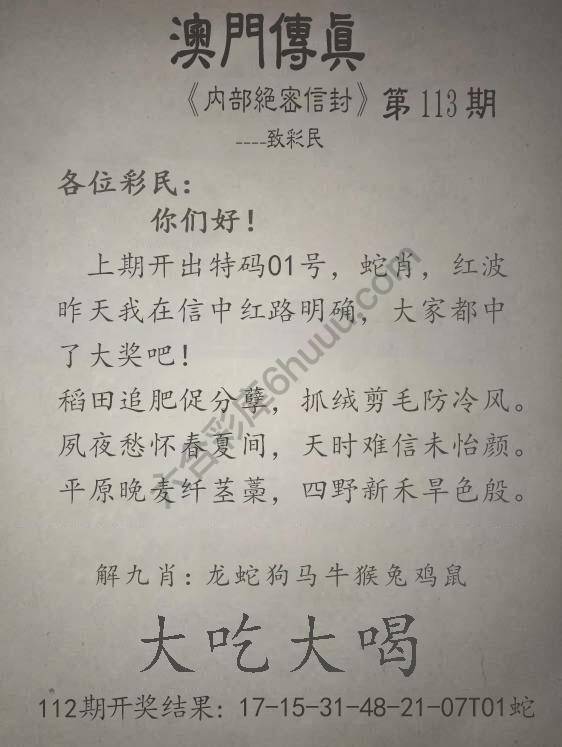 澳門傳眞
《内部絕密信封》第113期
----致彩民
各位彩民：
你们好！
上期开出特码01号，蛇肖，红波
昨天我在信中红路明确，大家都中
了大奖吧！
稻田追肥促分孽，抓绒剪毛防冷风。
夙夜愁怀春夏间，天时难信未怡颜。
平原晚麦纤茎藁，四野新禾旱色殷。
解九肖：龙蛇狗马牛猴兔鸡鼠
大吃大喝
112期开奖结果：17-15-31-48-21-07T01蛇
六合彩库6huuu.com